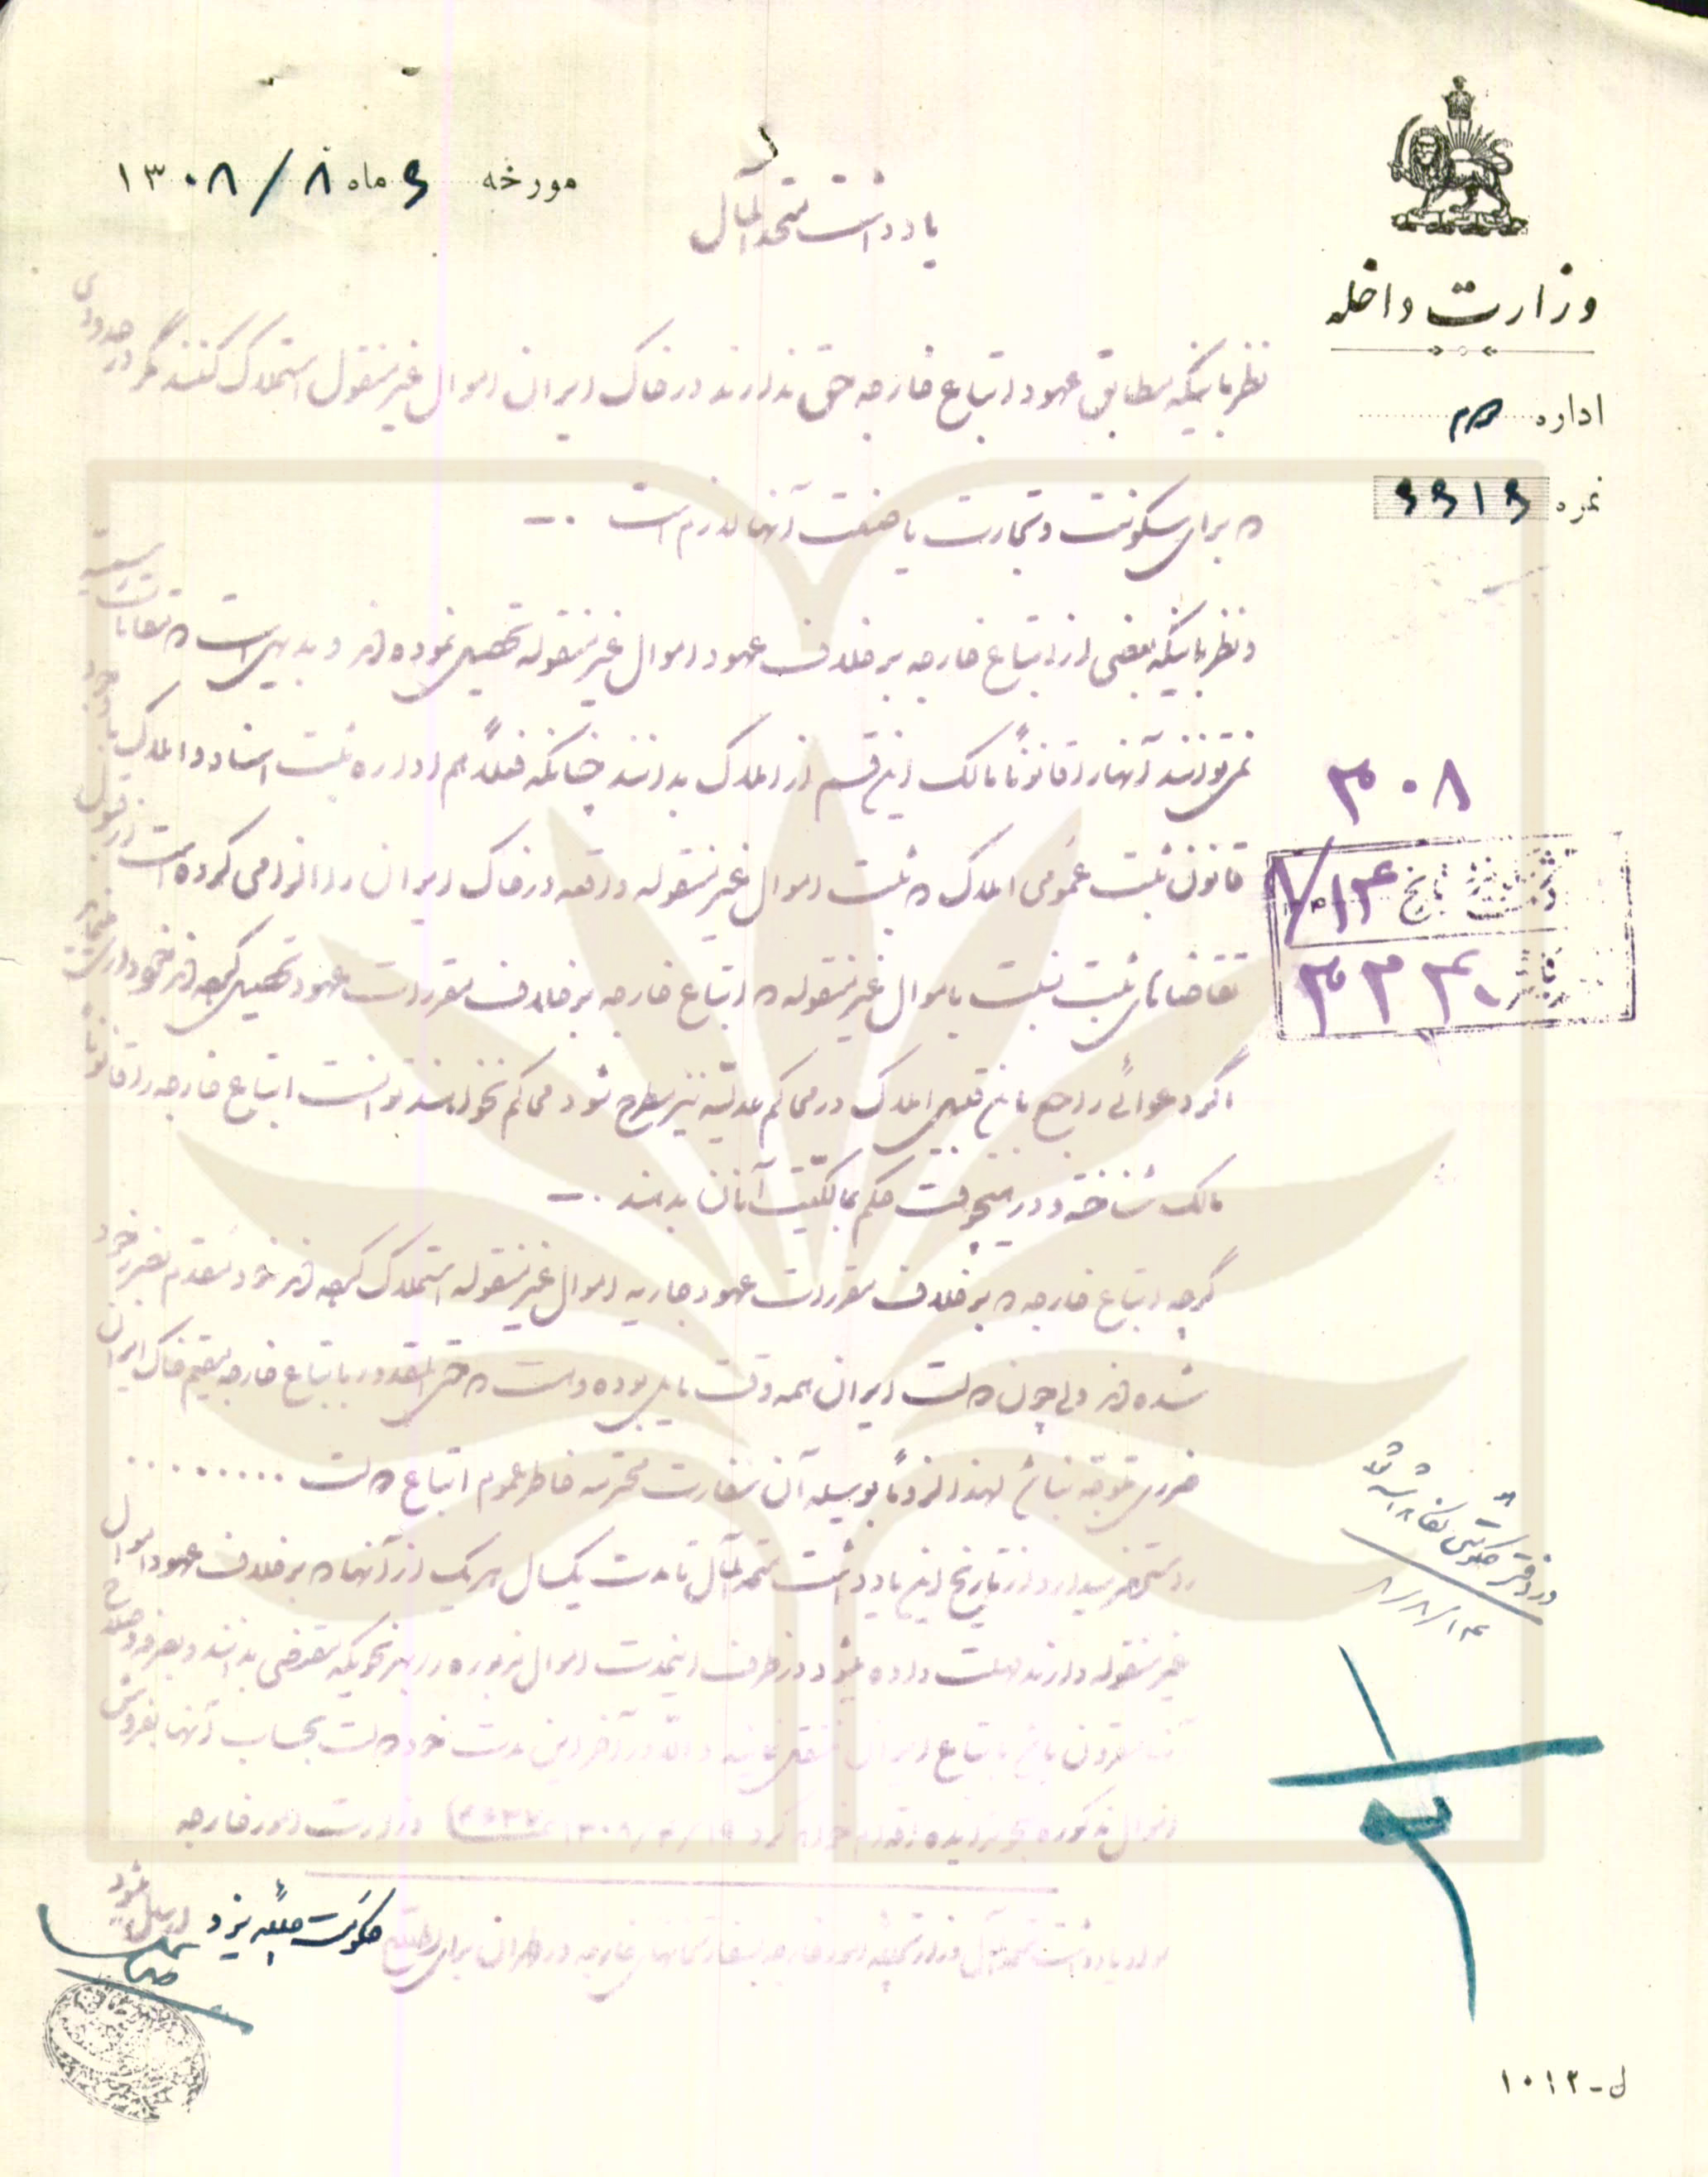 وزارت داخله
اداره
نمره ۶۶۱۶
مورخه ۶ ماه ۸ / ۱۳۰۸
یادداشت متحدالمآل
نظر باینکه مطابق عهود اتباع خارجه حق ندارند در خاک ایران اموال غیر منقول استملاک کنند مگر در حدودی
که برای سکونت و تجارت یا صنعت آنها لازم است ۰ــ
و نظر باینکه بعضی از اتباع خارجه بر خلاف عهود اموال غیر منقوله تحصیل نموده‌اند و بدیهی است که مقامات
نمی‌توانند آنها را قانوناً مالک این قسم از املاک بدانند چنانکه فعلاً هم اداره ثبت اسناد و املاک با وجود
قانون ثبت عمومی املاک که ثبت اموال غیر منقوله واقعه در خاک ایران را الزامی کرده است از قبول
تقاضاهای ثبت نسبت باموال غیر منقوله که اتباع خارجه بر خلاف مقررات عهود تحصیل کرده‌اند خودداری
اگر دعوائی راجع باین قبیل املاک در محاکم عدلیه نیز مطرح شود محاکم نخواهند توانست اتباع خارجه را قانوناً
مالک شناخته و در نتیجه حکم بمالکیت آنان بدهند ۰ــ
گرچه اتباع خارجه که بر خلاف مقررات عهود جاریه اموال غیر منقوله استملاک کرده‌اند خود مقدم بضرر خود
شده‌اند ولی چون دولت ایران همه وقت مایل بوده و هست که حتی‌المقدور باتباع خارجه مقیم خاک ایران
ضرری متوجه نباشد لهذا لزوماً بوسیله آن سفارت محترمه خاطر عموم اتباع دولت .........
را مستحضر میدارد از تاریخ این یادداشت متحدالمآل تا مدت یکسال هر یک از آنها که بر خلاف عهود اموال
غیر منقوله دارند مهلت داده میشود در ظرف اینمدت اموال مزبوره را بهر نحویکه مقتضی بدانند و بصرفه و صلاح
باتباع ایران منتقل نمایند والا در آخر این مدت خود دولت بحساب آنها بفروش
اموال مذکوره اقدام خواهد کرد وزارت امور خارجه
سواد یادداشت متحدالمآل وزارت جلیله امور خارجه بسفارتخانهای خارجه در طهران برای اطلاع
حکومت جلیله یزد ارسال میشود
۳۰۸
تاریخ ۱۴/۸
ل-۱۰۱۲